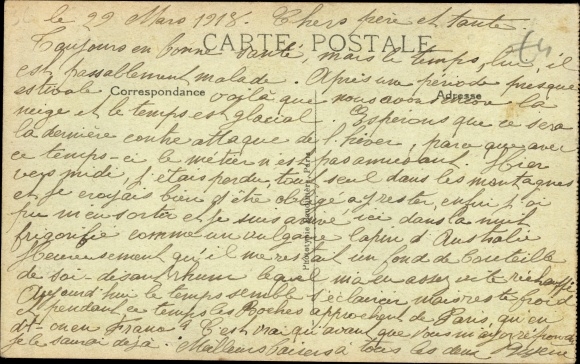 le 22 Mars 1918. Chers père et tante.
Toujours en bonne santé, mais le temps, lui, il
CARTE POSTALE
est passablement malade. Après une période presque
estivale voilà que nous avons encore la
Correspondance
Adresse
neige et le temps est glacial. Espérons que ce sera
la dernière contre attaque de l'hiver, parce que avec
ce temps-ci le métier n'est pas amusant. Hier
vers midi, j'étais perdu, tout seul dans les montagnes
et je croyais bien d'être obligé d'y rester, enfin j'ai
pu m'en sortir et je suis arrivé ici dans la nuit
frigorifié comme un vulgaire lapin d'Australie
Heureusement qu'il me restait un fond de bouteille
de soi-disant rhum lequel m'a en assez vite réchauffé
Aujourd'hui le temps semble s'éclaircir mais reste froid
Cependant ce temps les Boches approchent de Paris, qu'en
dit-on en France? C'est vrai qu'avant que vous m'ayez répondu
je le saurai déjà. Meilleurs baisers à tous les deux